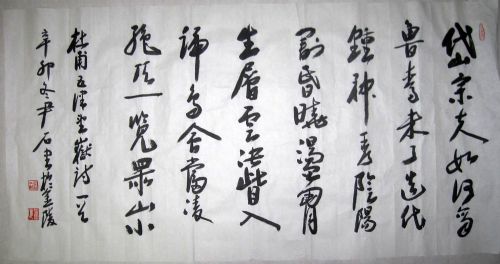 岱宗夫如何齊
魯青未了造化
鐘神秀陰陽
割昏曉盪胸
生層云決眥入
歸鳥會當凌
絕頂一覽眾山小
杜甫五律望嶽詩一首
辛卯冬尹石書於金陵